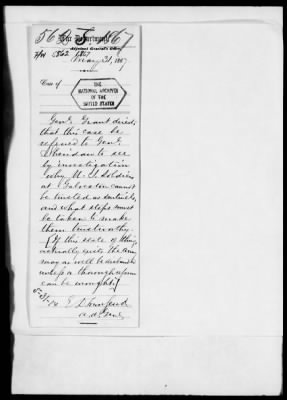 War Department,
Adjutant General's Office,
May 31, 1867
Case of
THE
NATIONAL ARCHIVES
OF THE
UNITED STATES
Genl. Grant directs
that this case be
referred to Genl.
Sheridan to see
by investigation
why U.S. Soldiers
at Galveston cannot
be trusted as sentinels,
and what steps must
be taken to make
them trustworthy.
(If this state of things
actually exists the Army
may as well be disbanded
unless a thorough reform
can be wrought)
E D Townsend
A. A. Genl.